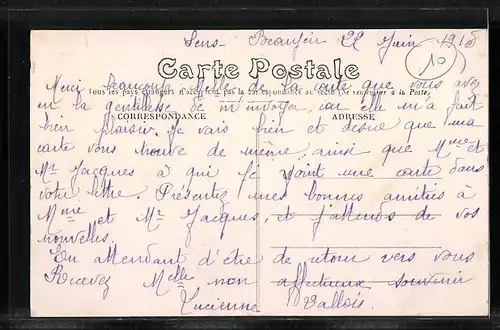 Sens- Beaujeu 22 Juin 1918
10
Carte Postale
Tous les pays étrangers n'acceptent pas la correspondance au recto (Se renseigner à la Poste)
CORRESPONDANCE
ADRESSE
Merci beaucoup de la carte que vous avez
eu la gentillesse de m'envoyer, car elle m'a fait
bien plaisir. Je vais bien et désire que ma
carte vous trouve de même, ainsi que Mme
et Mr Jacques à qui je joint une carte dans
votre lettre. Présentez mes bonnes amitiés à
Mme et Mr Jacques, et j'attends de vos
nouvelles.
En attendant d'être de retour vers vous
Recevez Melle mon affectueux souvenir
Lucienne Vallois.